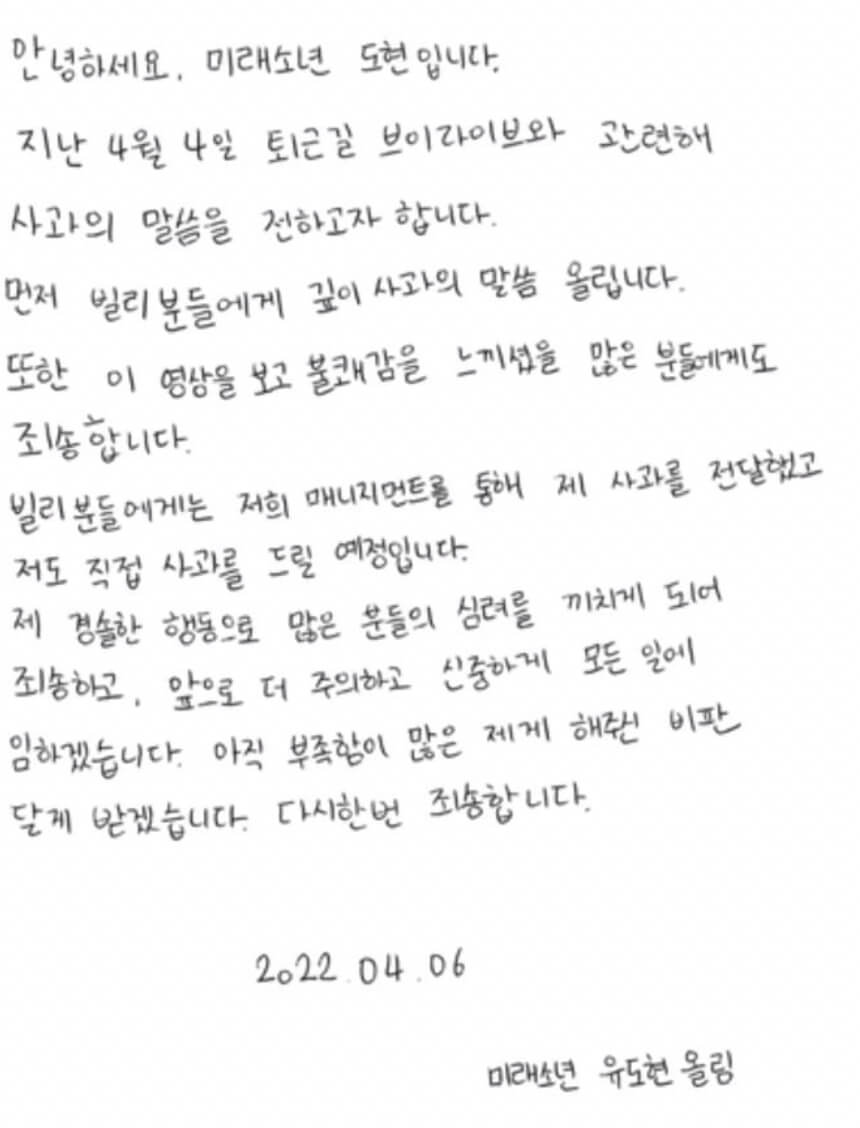 안녕하세요, 미래소년 도현입니다.
지난 4월 4일 퇴근길 브이라이브와 관련해
사과의 말씀을 전하고자 합니다.
먼저 빌리분들에게 깊이 사과의 말씀 올립니다.
또한 이 영상을 보고 불쾌감을 느끼셨을 많은 분들에게도
죄송합니다.
빌리분들에게는 저희 매니지먼트를 통해 제 사과를 전달했고
저도 직접 사과를 드릴 예정입니다.
제 경솔한 행동으로 많은 분들의 심려를 끼치게 되어
죄송하고, 앞으로 더 주의하고 신중하게 모든 일에
임하겠습니다. 아직 부족함이 많은 제게 해주신 비판
달게 받겠습니다. 다시한번 죄송합니다.
2022.04.06
미래소년 유도현 올림